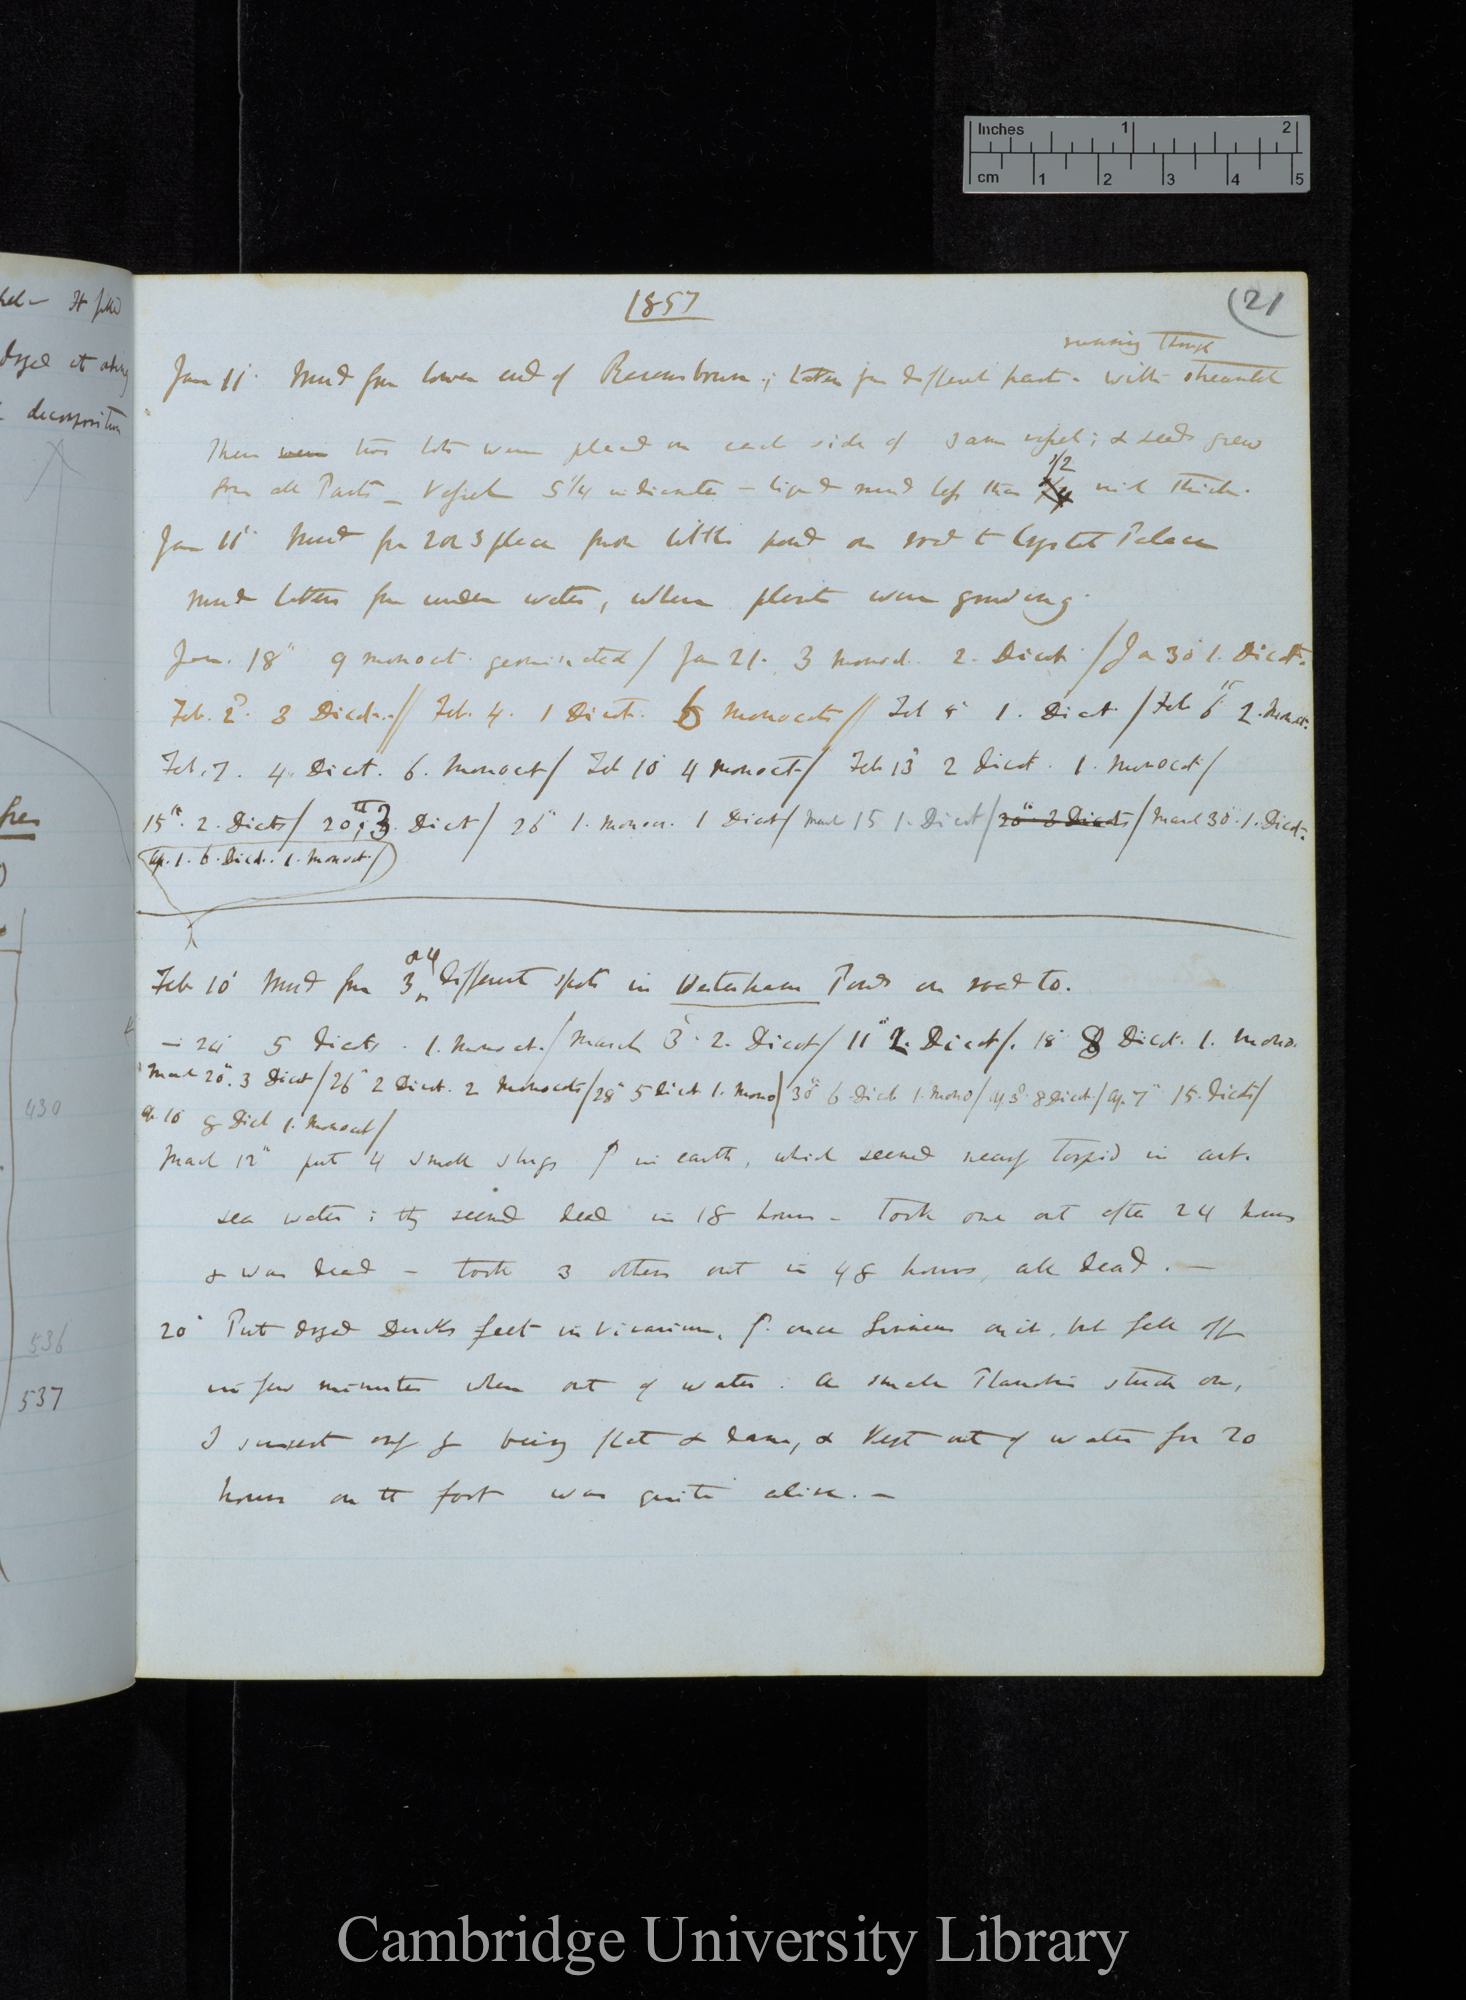 Inches 1 2
cm 1 2 3 4 5
1857
(21
running through
Jan 11th Mud from lower end of Ravensbourn; taken from different parts with streamlet
These were two lots were placed on each side of same vessel; & seeds grew
from all Parts — Vessel 5 1/4 in diameter — liquid mud less than 1/2 inch thick.
Jan 11th Mud from 2 or 3 places from little pond on road to Crystal Palace
mud taken from under water, where plants were growing.
Jan. 18th 9 monocot. germinated / Jan 21. 3 monocot. 2. Dicot. / Jan 30 1. Dicot.
Feb. 2d. 3 Dicot. // Feb. 4. 1 Dicot. 6 Monocots // Feb 5 1. Dicot / Feb 6th 2. Monocot.
Feb. 7. 4. Dicot. 6. Monocot / Feb 10 4 monocot / Feb 13 2 Dicot. 1. Monocot /
15th. 2. Dicots / 20th. 3. Dicot / 26th 1. Monoc. 1 Dicot / March 15 1. Dicot / 20th 3 Dicots / March 30. 1. Dicot.
Ap. 1. 6. Dicot. 1. Monocot /
Feb 10th Mud from 3 or 4 different spots in Westerham Ponds on road to.
— 24 5 Dicots. 1. Monocot. / March 3d. 2. Dicot / 11th 2. Dicot /. 18th 8 Dicot. 1. Mono.
March 20th. 3 Dicot / 26th 2 Dicot. 2 Monocots / 28th 5 Dicot 1. Mono / 30th 6 Dicot 1. Mono / Ap 3d. 8 Dicot / Ap. 7th 15. Dicots /
Ap 10 8 Dicot 1. Monocot /
March 12th put 4 small slugs in earth, which seemed nearly torpid in art.
sea water; they seemed dead in 18 hours — Took one out after 24 hours
& was dead — took 3 others out in 48 hours, all dead. —
20th Put dryed Ducks feet in vivarium, once Limneus on it, but fell off
in few minutes when out of water. A small Planorbis stuck on,
I suspect only from being flat & damp, & kept out of water for 20
hours on the foot was quite alive. —
decomposition
430
536
537
Cambridge University Library